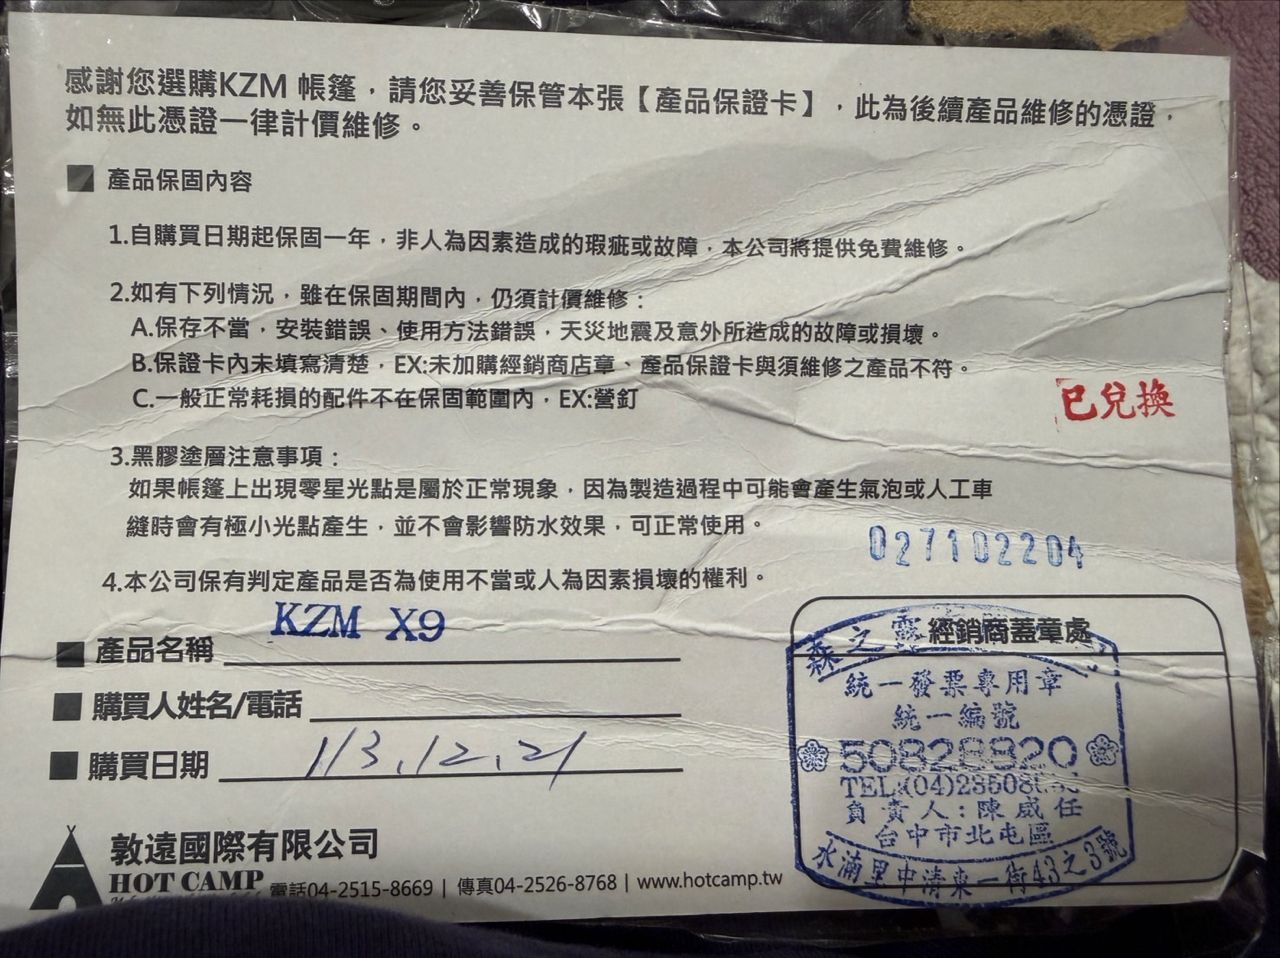 感謝您選購KZM 帳篷，請您妥善保管本張【產品保證卡】，此為後續產品維修的憑證，
如無此憑證一律計價維修。
產品保固內容
1.自購買日期起保固一年，非人為因素造成的瑕疵或故障，本公司將提供免費維修。
2.如有下列情況，雖在保固期間內，仍須計價維修：
A.保存不當，安裝錯誤、使用方法錯誤，天災地震及意外所造成的故障或損壞。
B.保證卡內未填寫清楚，EX:未加購經銷商店章、產品保證卡與須維修之產品不符。
C.一般正常耗損的配件不在保固範圍內，EX:營釘
已兌換
3.黑膠塗層注意事項：
如果帳篷上出現零星光點是屬於正常現象，因為製造過程中可能會產生氣泡或人工車
縫時會有極小光點產生，並不會影響防水效果，可正常使用。
027102204
4.本公司保有判定產品是否為使用不當或人為因素損壞的權利。
產品名稱 KZM X9
購買人姓名/電話
購買日期 113.12.21
經銷商蓋章處
森之
統一發票專用章
統一編號
50828820
TEL:(04)23508
負責人：陳威任
台中市北屯區
水湳里中清東一街43之3號
敦遠國際有限公司
HOT CAMP
電話04-2515-8669 | 傳真04-2526-8768 | www.hotcamp.tw